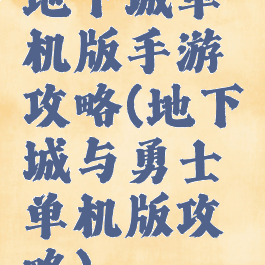 地下城单
机版手游
攻略(地下
城与勇士
单机版攻
略)